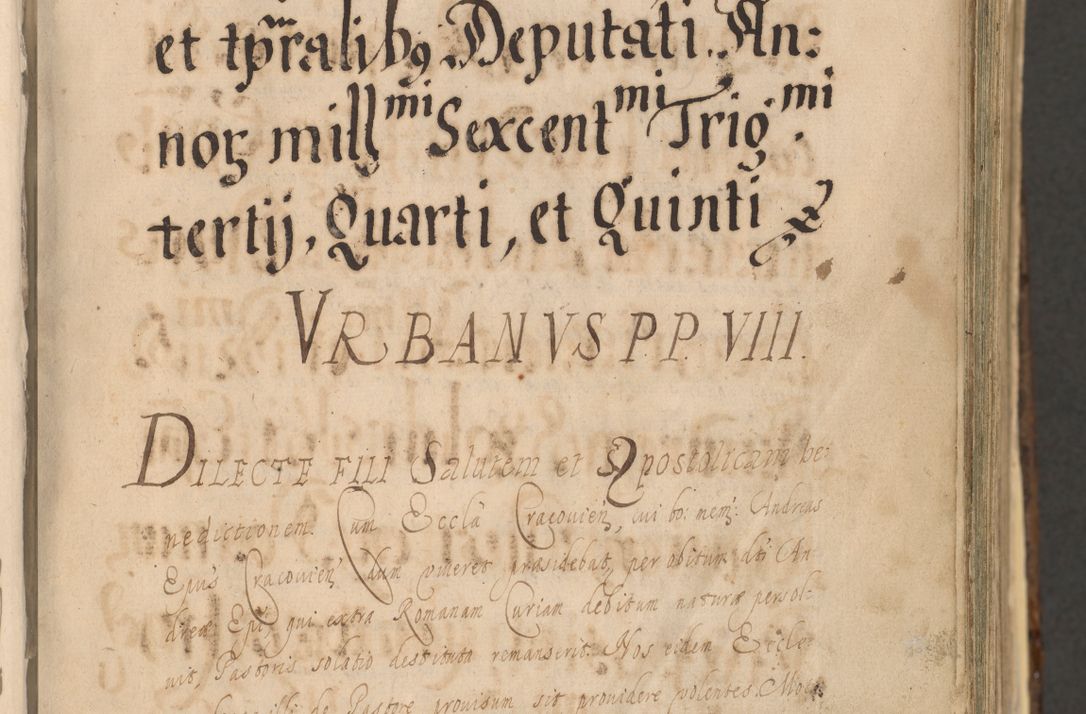 et tp̃ralib9 Deputati. An:
noꝝ mill^mi Sexcent^mi Trig^mi.
tertij, Quarti, et Quinti
VRBANVS P.P. VIII.
DILECTE FILI Salutem et Apostolicam be:
nedictionem. Cum Eccl̃a Cracovieñ, cui bo: mem: Andreas
Ep̃us Cracovieñ, dum viveret præsidebat, per obitum d̃ti An
dreæ Ep̃i qui extra Romanam Curiam debitum naturæ persol:
vit, Pastoris solatio destituta remanserit. Nos eidem Eccle
illi de Pastore provisum sit providere volentes. Motu